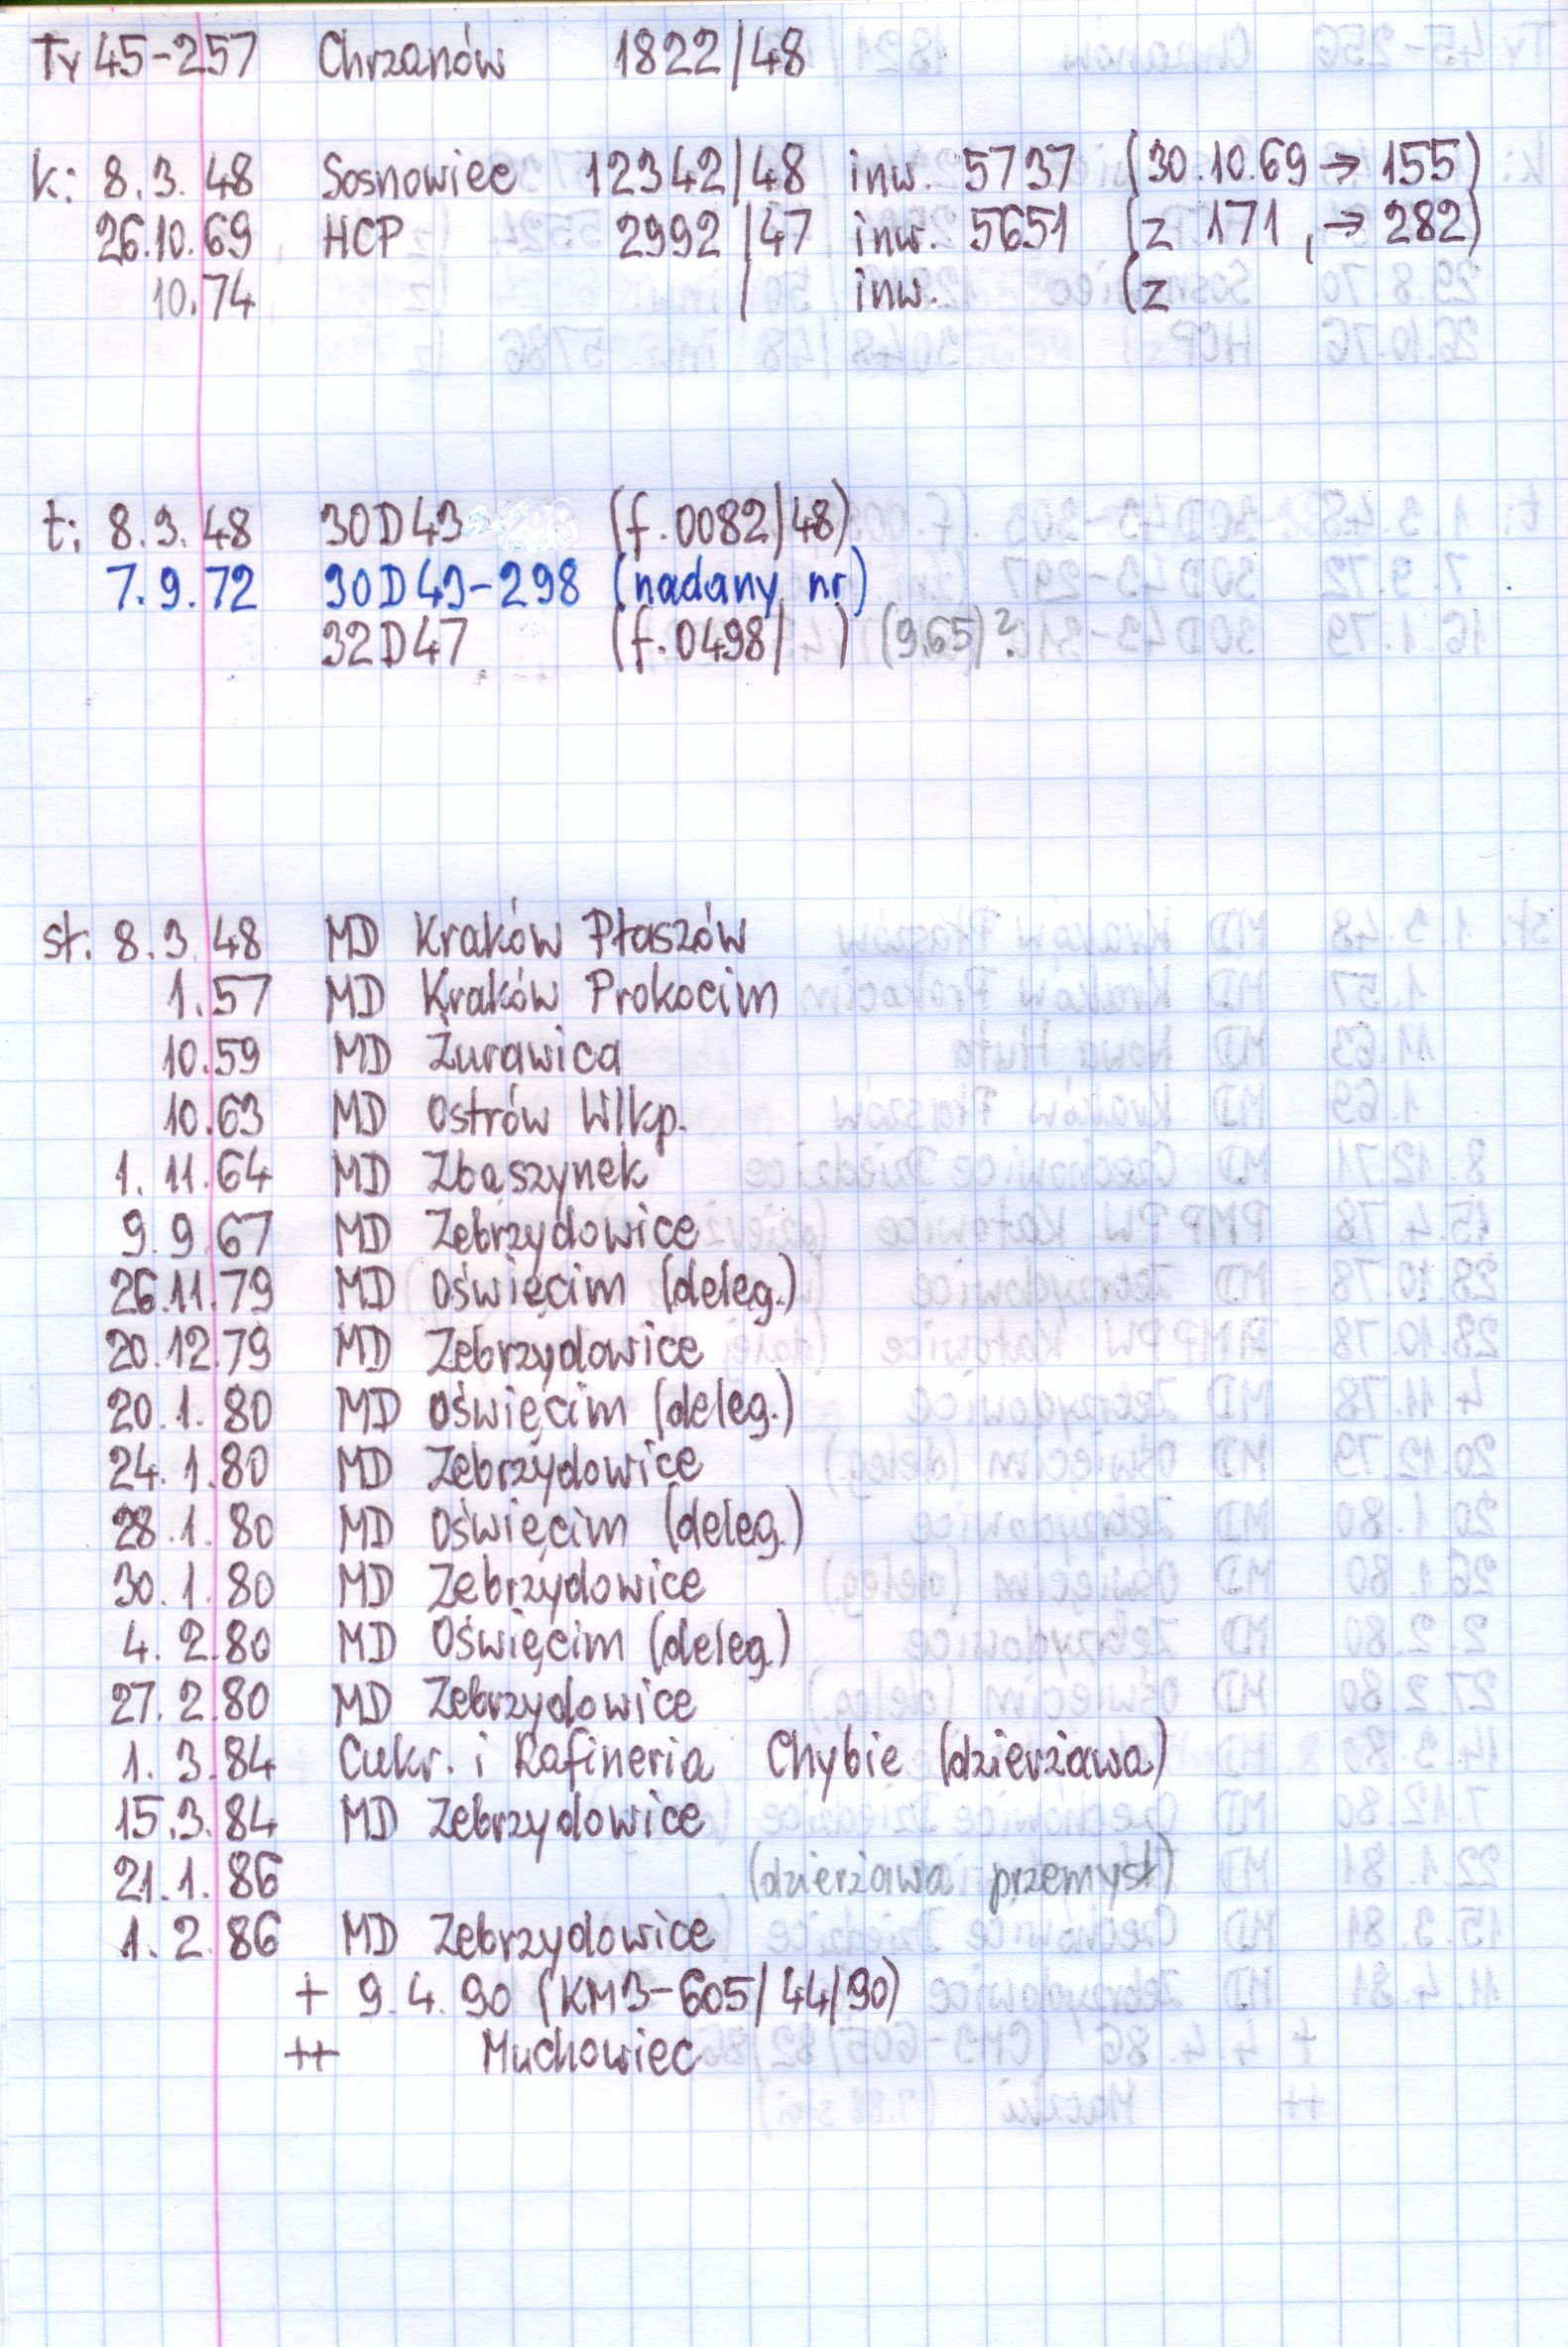 Ty 45-257 Chrzanów 1822/48
k: 8.3.48 Sosnowiec 12342/48 inw. 5737 (30.10.69 → 155)
26.10.69 HCP 2992/47 inw. 5651 (z 171, → 282)
10.74 / inw. (z
t: 8.3.48 30D43 (f.0082/48)
7.9.72 30D43-298 (nadany nr)
32D47 (f.0498/ ) (9.65)?
st: 8.3.48 MD Kraków Płaszów
1.57 MD Kraków Prokocim
10.59 MD Żurawica
10.63 MD Ostrów Wlkp.
1.11.64 MD Zbąszynek
9.9.67 MD Zebrzydowice
26.11.79 MD Oświęcim (deleg.)
20.12.79 MD Zebrzydowice
20.1.80 MD Oświęcim (deleg.)
24.1.80 MD Zebrzydowice
28.1.80 MD Oświęcim (deleg.)
30.1.80 MD Zebrzydowice
4.2.80 MD Oświęcim (deleg.)
27.2.80 MD Zebrzydowice
1.3.84 Cukr. i Rafineria Chybie (dzierżawa)
15.3.84 MD Zebrzydowice
21.1.86 (dzierżawa przemysł)
1.2.86 MD Zebrzydowice
+ 9.4.90 (KM3-605/44/90)
++ Muchowiec